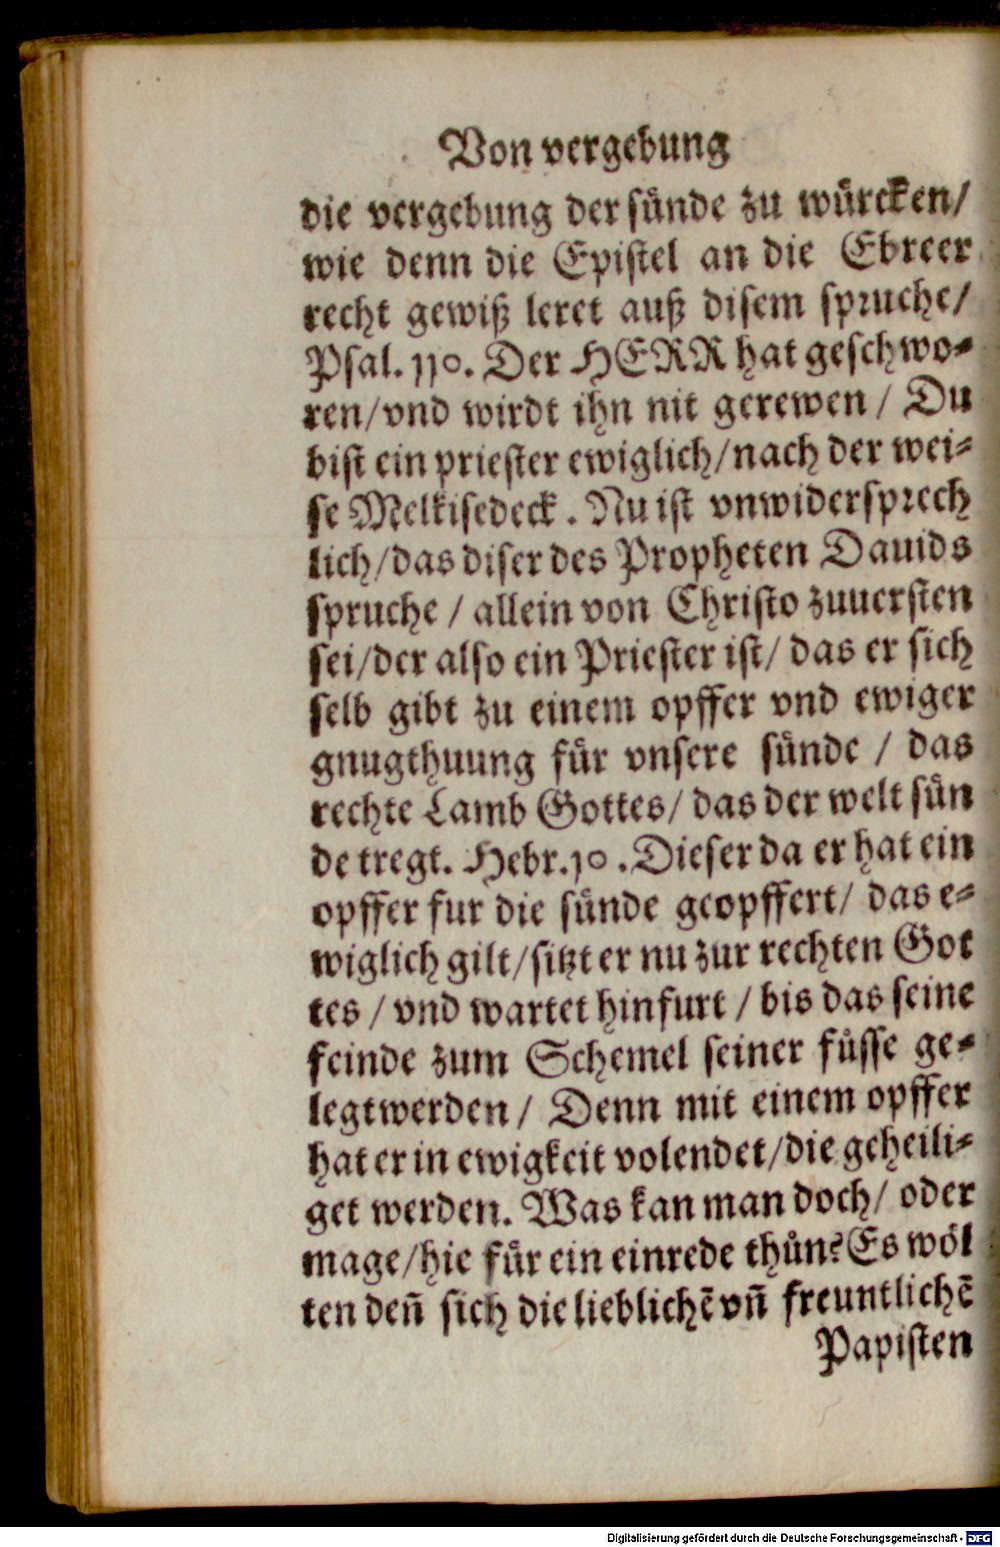 Von vergebung
die vergebung der sünde zu würcken/
wie denn die Epistel an die Ebreer
recht gewiß leret auß disem spruche/
Psal. 110. Der HERR hat geschwo-
ren/vnd wirdt ihn nit gerewen / Du
bist ein priester ewiglich/nach der wei-
se Melkisedeck. Nu ist vnwidersprech
lich/das diser des Propheten Dauids
spruche / allein von Christo zuuersten
sei/der also ein Priester ist/ das er sich
selb gibt zu einem opffer vnd ewiger
gnugthuung für vnsere sünde / das
rechte Lamb Gottes/ das der welt sün
de tregt. Hebr. 10. Dieser da er hat ein
opffer fur die sünde geopffert/ das e-
wiglich gilt/sitzt er nu zur rechten Got
tes / vnd wartet hinfurt / bis das seine
feinde zum Schemel seiner füsse ge-
legt werden / Denn mit einem opffer
hat er in ewigkeit volendet/die geheili-
get werden. Was kan man doch/ oder
mage/hie für ein einrede thůn? Es wöl
ten deñ sich die lieblichē vñ freuntlichē
Papisten
Digitalisierung gefördert durch die Deutsche Forschungsgemeinschaft - DFG